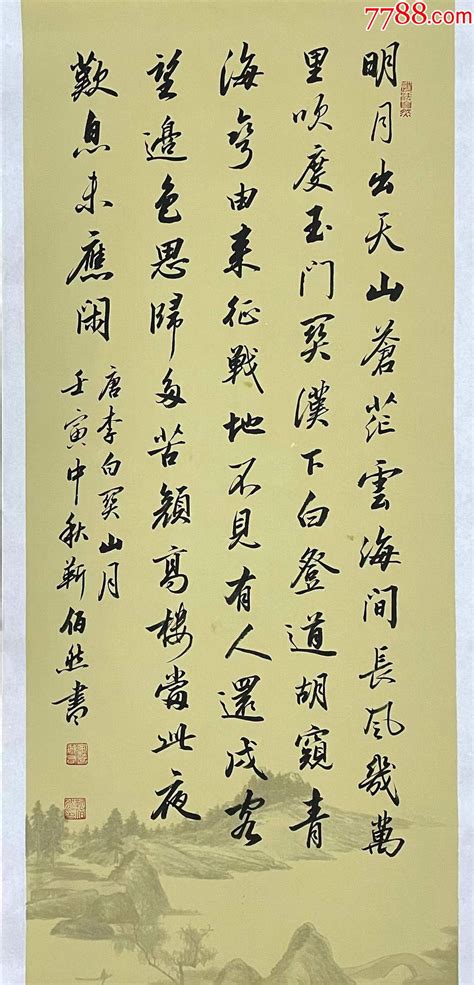 7788.com
明月出天山蒼茫雲海間長風幾萬
里吹度玉門関漢下白登道胡窺青
海弯由来征戰地不見有人還戍客
望邊色思歸多苦顔高樓當此夜
歎息未應閑
唐李白関山月
壬寅中秋靳佰然書